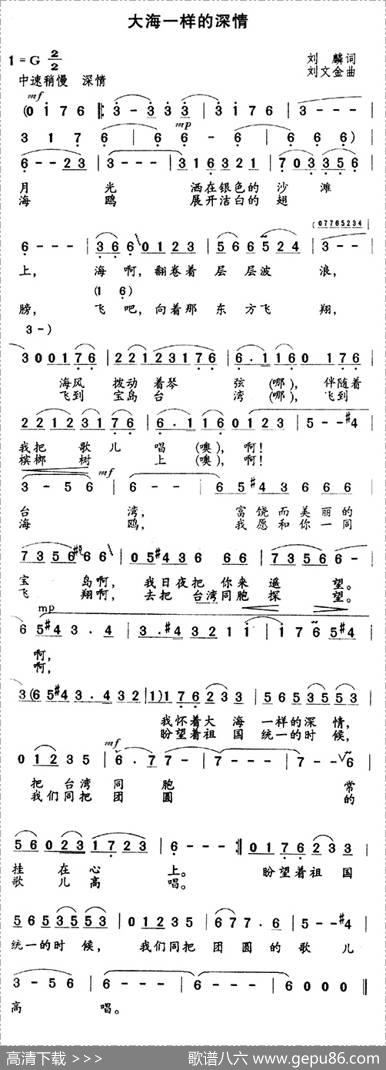 大海一样的深情
1=G 2/2
刘 麟词
刘文金曲
中速稍慢 深情
mf
(0 1 7 6 3 - 3 3 3 3 1 7 6 3 - -
mp
3 1 7 6 6 6 - 6 6 6)
6 - - 2 3 3 - - - 3 1 6 3 2 1 7 0 3 3 5 6
月 光 洒在银色的 沙 滩
海 鸥 展开洁白的 翅
0 7 7 6 5 2 3 4
6 - - - 3 6 6 0 1 2 3 5 6 6 5 2 4 3 - -
上, 海 啊, 翻卷着 层 层波 浪,
(1 6)
膀, 飞 吧, 向着那 东 方飞 翔,
3 -)
3 0 0 1 7 6 2 2 1 2 3 1 7 6 6 . 1 1 6 0 1 7 6
海风 拨动 着琴 弦 (哪), 伴随着
飞到 宝岛 台 湾 (哪), 飞到
2 2 1 2 3 1 7 6 6 . 1 1 6 0 1 2 3 5 - - #4
我把 歌儿 唱 (噢), 啊!
槟榔 树 上 (噢), 啊!
mf
3 - 5 6 6 - - - 6 5 #4 3 6 6 6
台 湾, 富饶而 美丽的
海 鸥, 我愿和 你一同
7 3 5 6 6 6 0 5 #4 3 6 6 6 7 3 5 6 6 -
宝 岛啊, 我日夜把 你来 遥 望。
飞 翔啊, 去把 台湾同胞 探 望。
mp
6 5 #4 3 . 4 3 . #4 3 2 1 1 1 1 7 6 5 #4
啊,
啊,
3 (6 5 #4 3 . 4 3 2 1 1) 1 7 6 2 3 3 5 6 5 3 5 5 3
我怀着大 海 一样的深 情,
盼望着祖 国 统一的时 候,
mf
0 1 2 3 5 6 . 7 7 - 7 - - - 7 - - 6
把 台湾 同 胞 常
我们同把 团 圆 的
5 6 0 2 3 1 7 2 3 6 - - - 0 1 7 6 2 3 3
挂 在 心 上。 盼望着祖 国
歌 儿 高 唱。
5 6 5 3 5 5 3 0 1 2 3 5 6 7 7 . 6 5 - - #4
统一的时 候, 我们同把 团 圆 的 歌 儿
3 - 5 6 6 - - - 6 - - - 6 0 0 0
高 唱。
高清下载 >>> 歌谱八六 www.gepu86.com